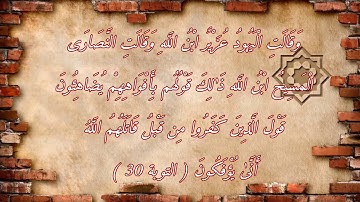 وَقَالَتِ الْيَهُودُ عُزَيْرٌ ابْنُ اللَّهِ وَقَالَتِ النَّصَارَى
الْمَسِيحُ ابْنُ اللَّهِ ذَٰلِكَ قَوْلُهُم بِأَفْوَاهِهِمْ يُضَاهِئُونَ
قَوْلَ الَّذِينَ كَفَرُوا مِن قَبْلُ قَاتَلَهُمُ اللَّهُ
أَنَّىٰ يُؤْفَكُونَ ( التوبة 30 )